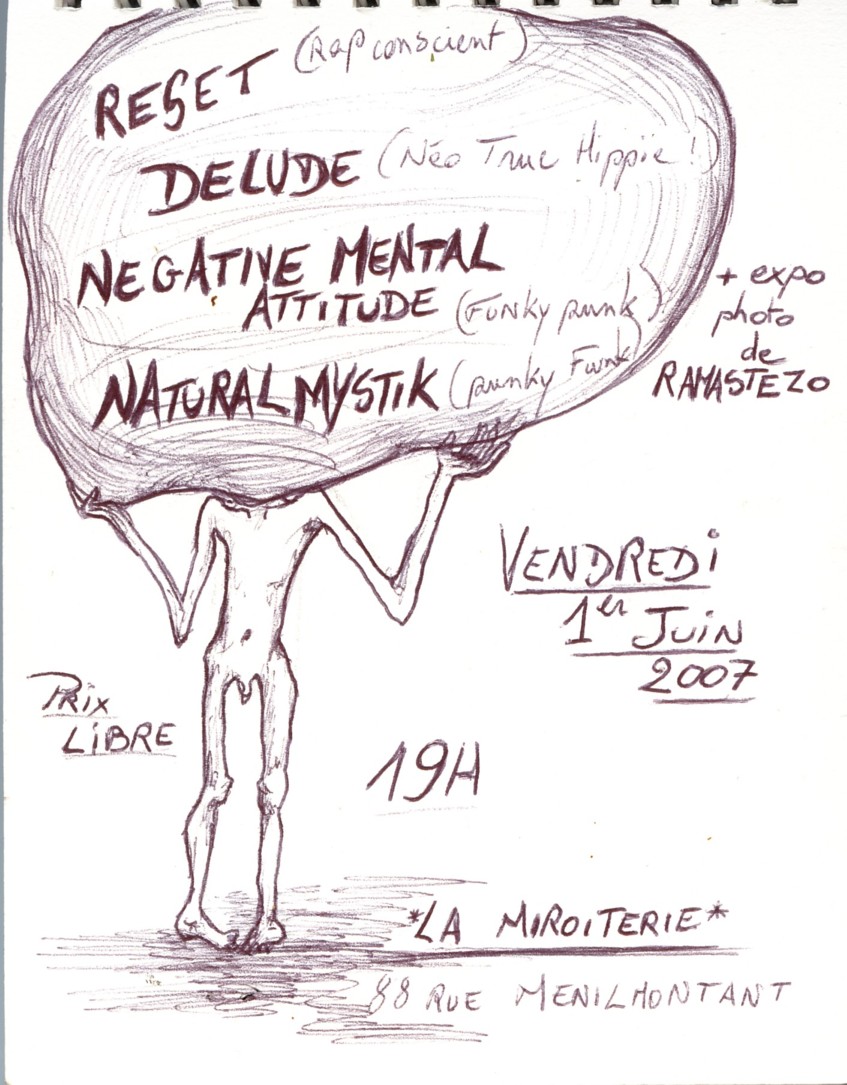 RESET (Rap conscient)
DELUDE (Néo Truc Hippie !)
NEGATIVE MENTAL
ATTITUDE (Funky punk)
NATURAL MYSTIK (punky Funk)
+ expo
photo
de
RAMASTEZO
VENDREDi
1er JUiN
2007
PRix
LiBRE
19H
*LA MiROiTERiE*
88 RUE MENILMONTANT